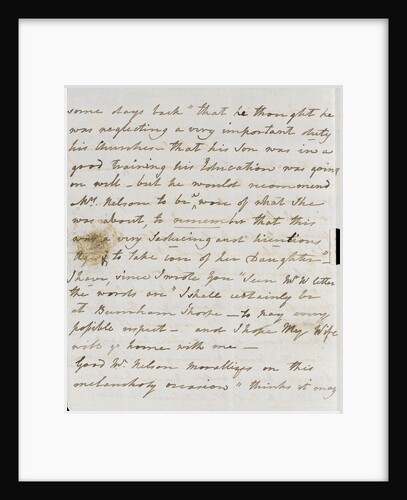 some days back " that he thought he
was neglecting a very important duty
his Churches – that his Son was in a
good training his Education was going
on well – but he would recommend
Mrs. Nelson to be ware of what She
was about, to remember that this
was a very Seducing and licentious
to take care of her Daughter "
I have, since I wrote You "Seen Mr W letter
the words are " I shall certainly be
at Burnham Thorpe – to pay every
possible respect – and I hope My Wife
will go home with me –
Good Mr. Nelson moralizes on this
melancholy occasion " thinks it may